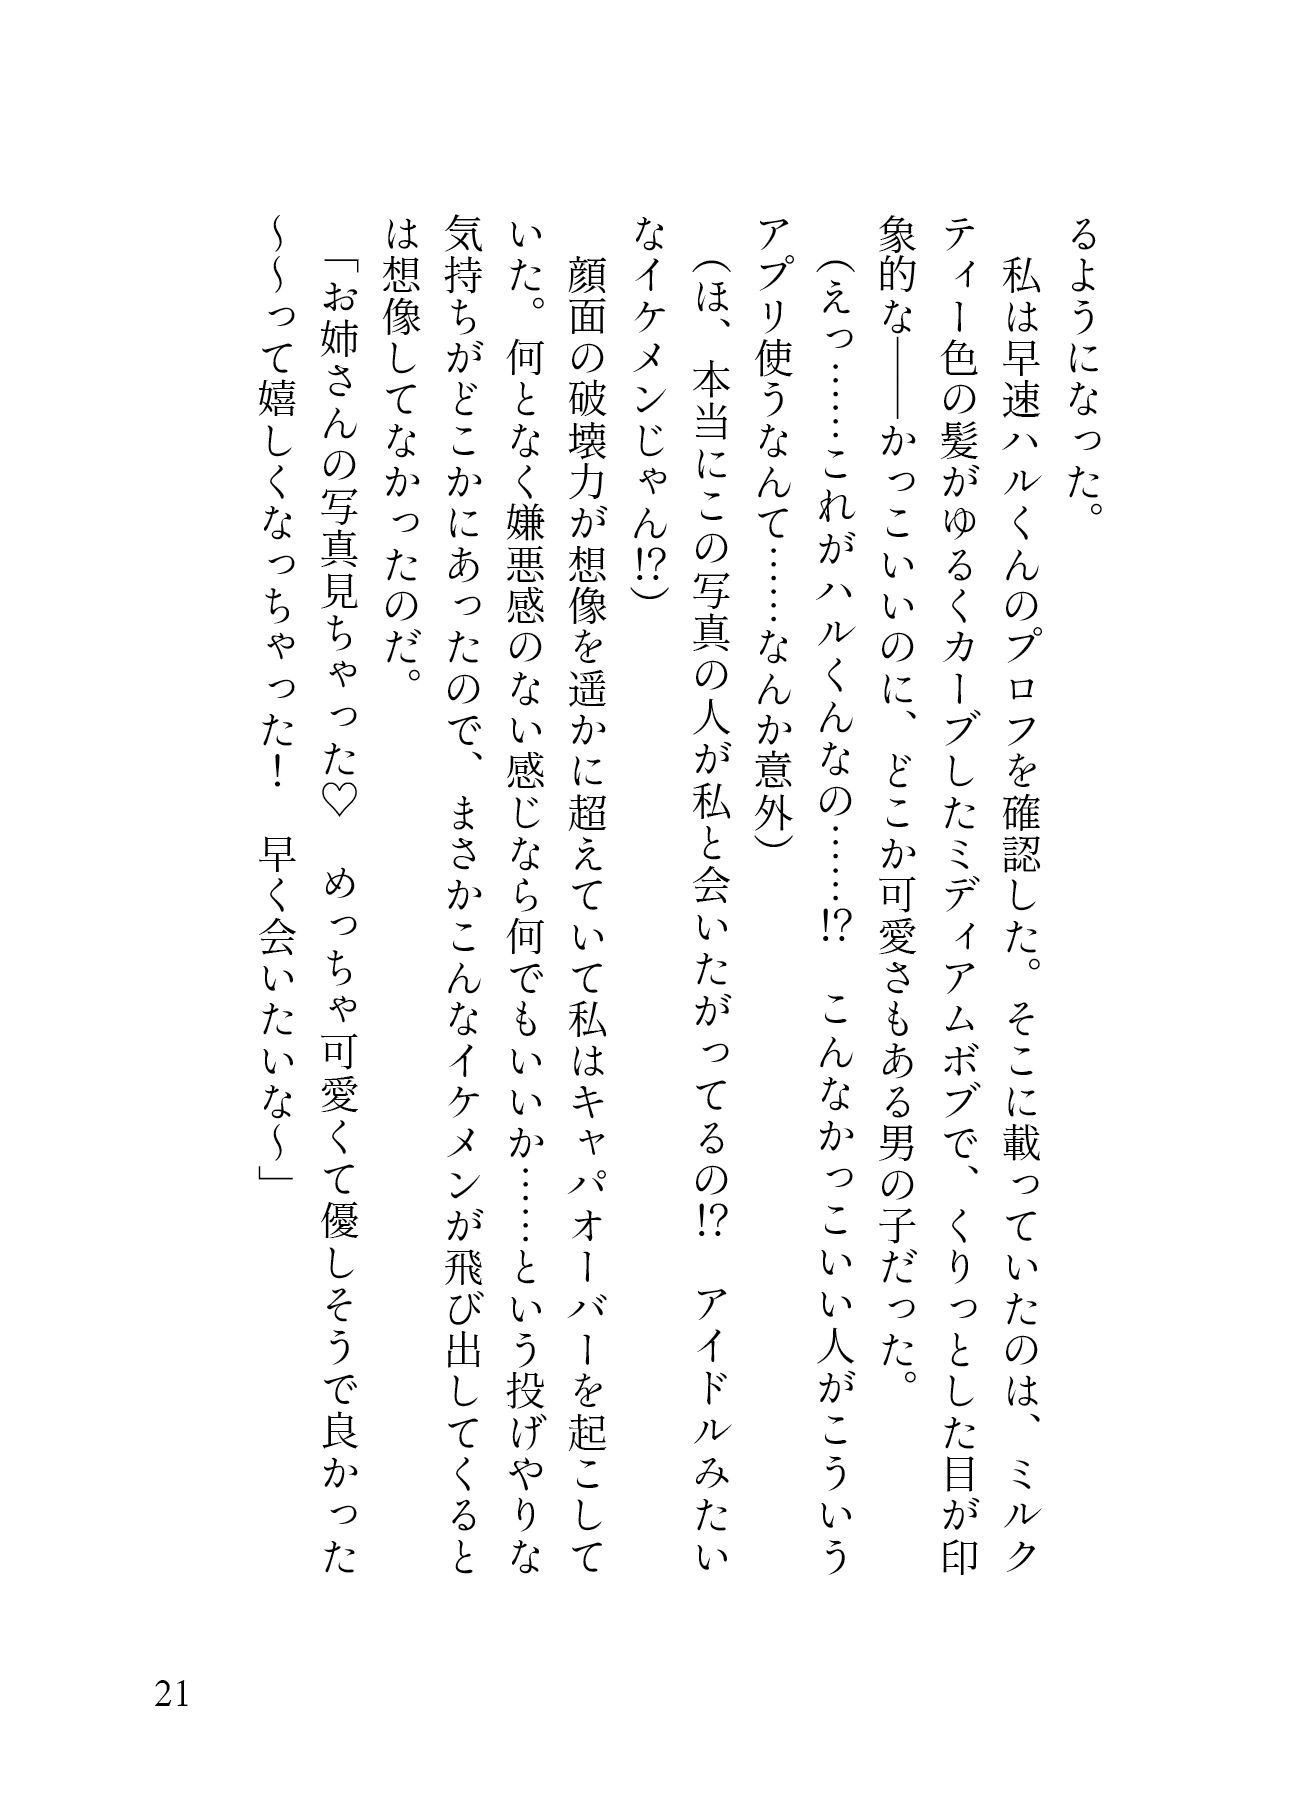 るようになった。
　私は早速ハルくんのプロフを確認した。そこに載っていたのは、ミルク
ティー色の髪がゆるくカーブしたミディアムボブで、くりっとした目が印
象的な――かっこいいのに、どこか可愛さもある男の子だった。
（えっ……これがハルくんなの……!?　こんなかっこいい人がこういう
アプリ使うなんて……なんか意外）
（ほ、本当にこの写真の人が私と会いたがってるの!?　アイドルみたい
なイケメンじゃん!?）
　顔面の破壊力が想像を遥かに超えていて私はキャパオーバーを起こして
いた。何となく嫌悪感のない感じなら何でもいいか……という投げやりな
気持ちがどこかにあったので、まさかこんなイケメンが飛び出してくると
は想像してなかったのだ。
「お姉さんの写真見ちゃった♡　めっちゃ可愛くて優しそうで良かった
～～って嬉しくなっちゃった！　早く会いたいな～」
21